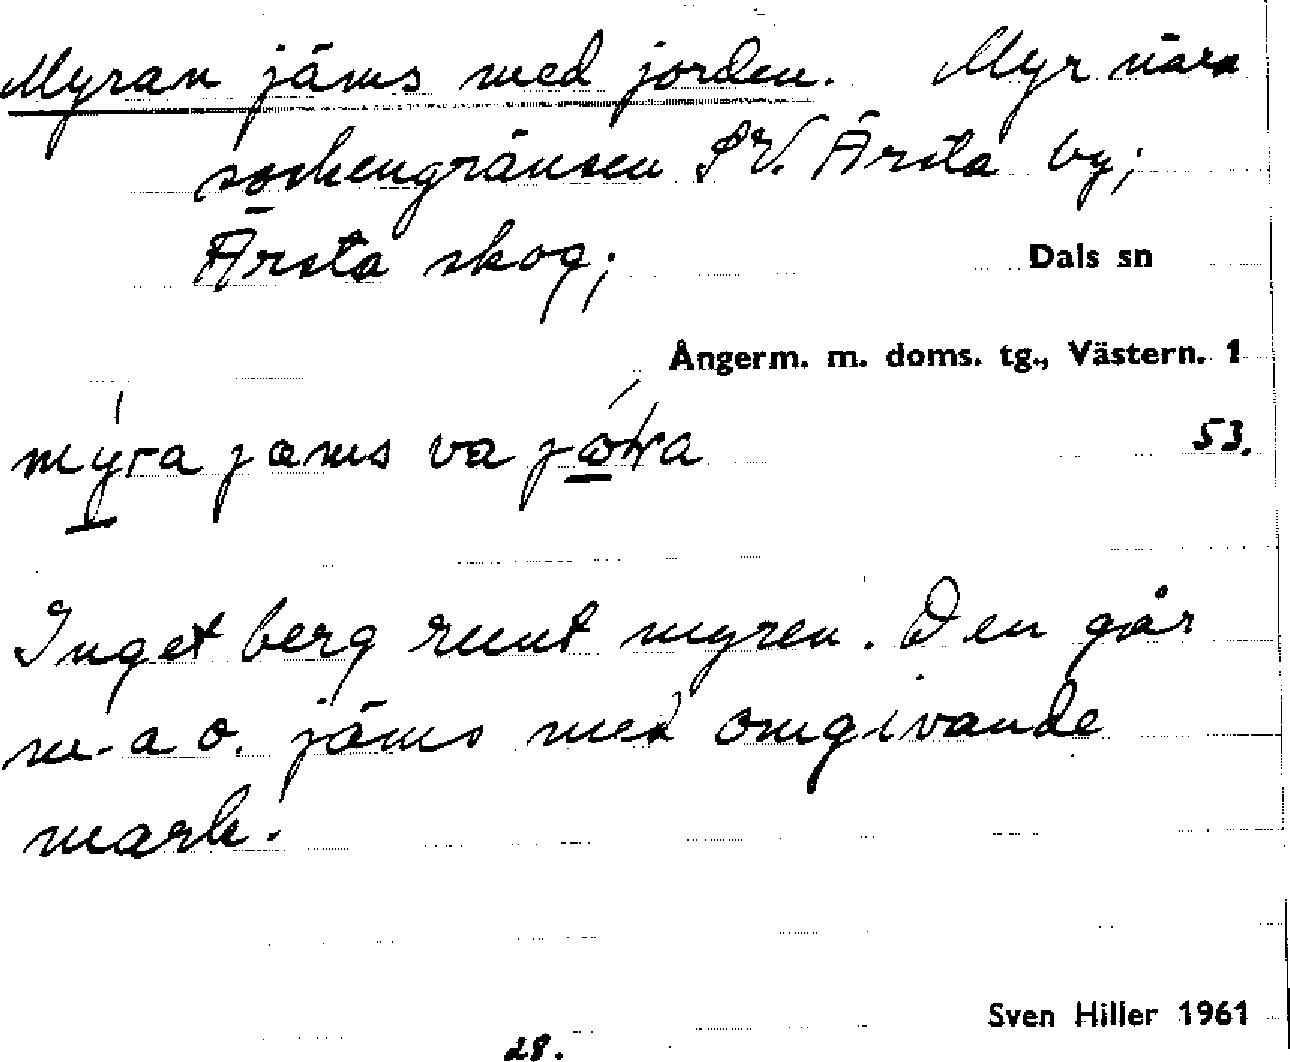 Myran jäms med jorden. Myr nära
sockengränsen SV. Ärsta by;
Ärsta skog;
Dals sn
Ångerm. m. doms. tg., Västern. 1
53.
myra jams va
Inget berg runt myren. Den går
m. a o. jäms med omgivande
mark.
Sven Hiller 1961
28.